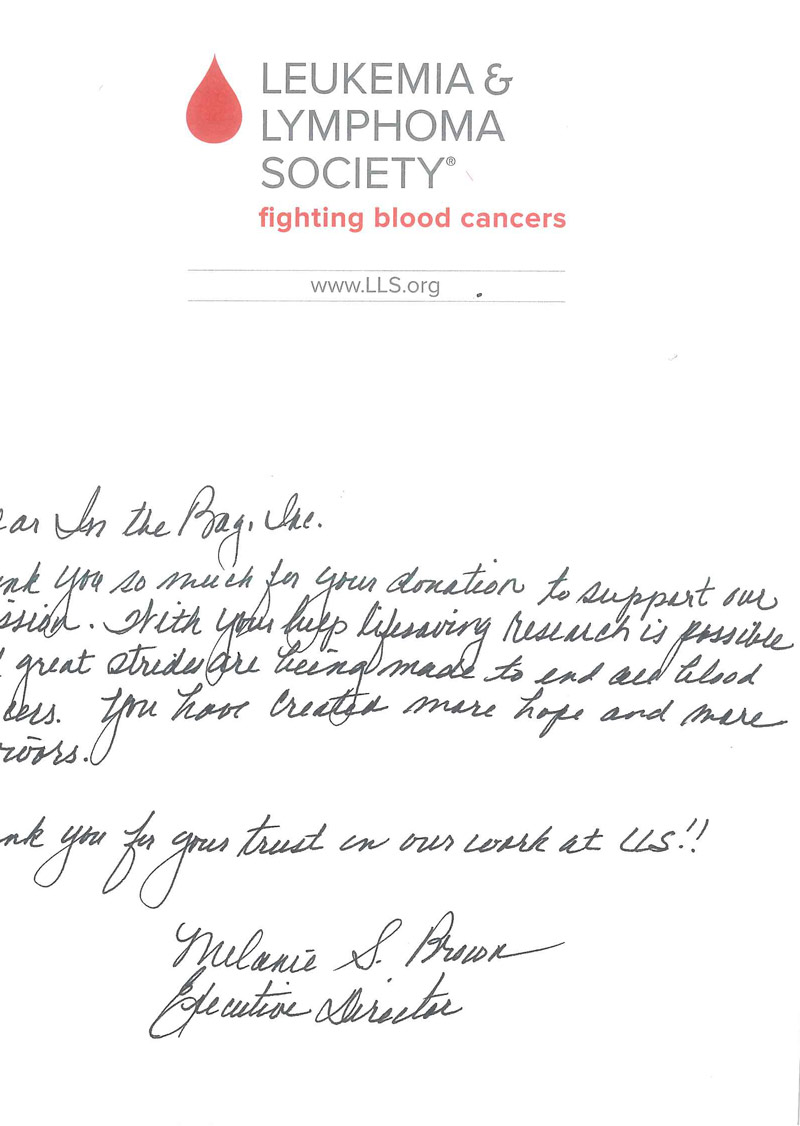 LEUKEMIA &
LYMPHOMA
SOCIETY®
fighting blood cancers
www.LLS.org
ear In the Bag, Inc.
nk you so much for your donation to support our
ission. With your help lifesaving research is possible
d great strides are being made to end all blood
cers. You have created more hope and more
vivors.
nk you for your trust in our work at LLS!!
Melanie S. Brown
Executive Director